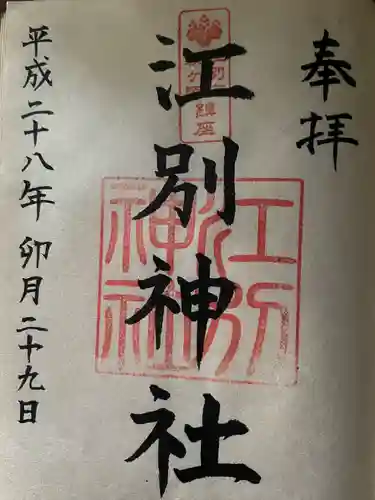 奉拝
江別神社
平成二十八年 卯月 二十九日
江別神社
鎮座